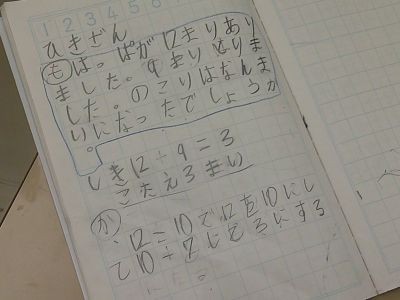 1 2 3 4 5 6
ひきざん
も は。ぱが12まいあり
ました。9まい なりま
した。のこりはなんま
いになったでしょうか
。
しき12-9=3
こたえ3まい
か 12=10で12を10にし
て10+2にする